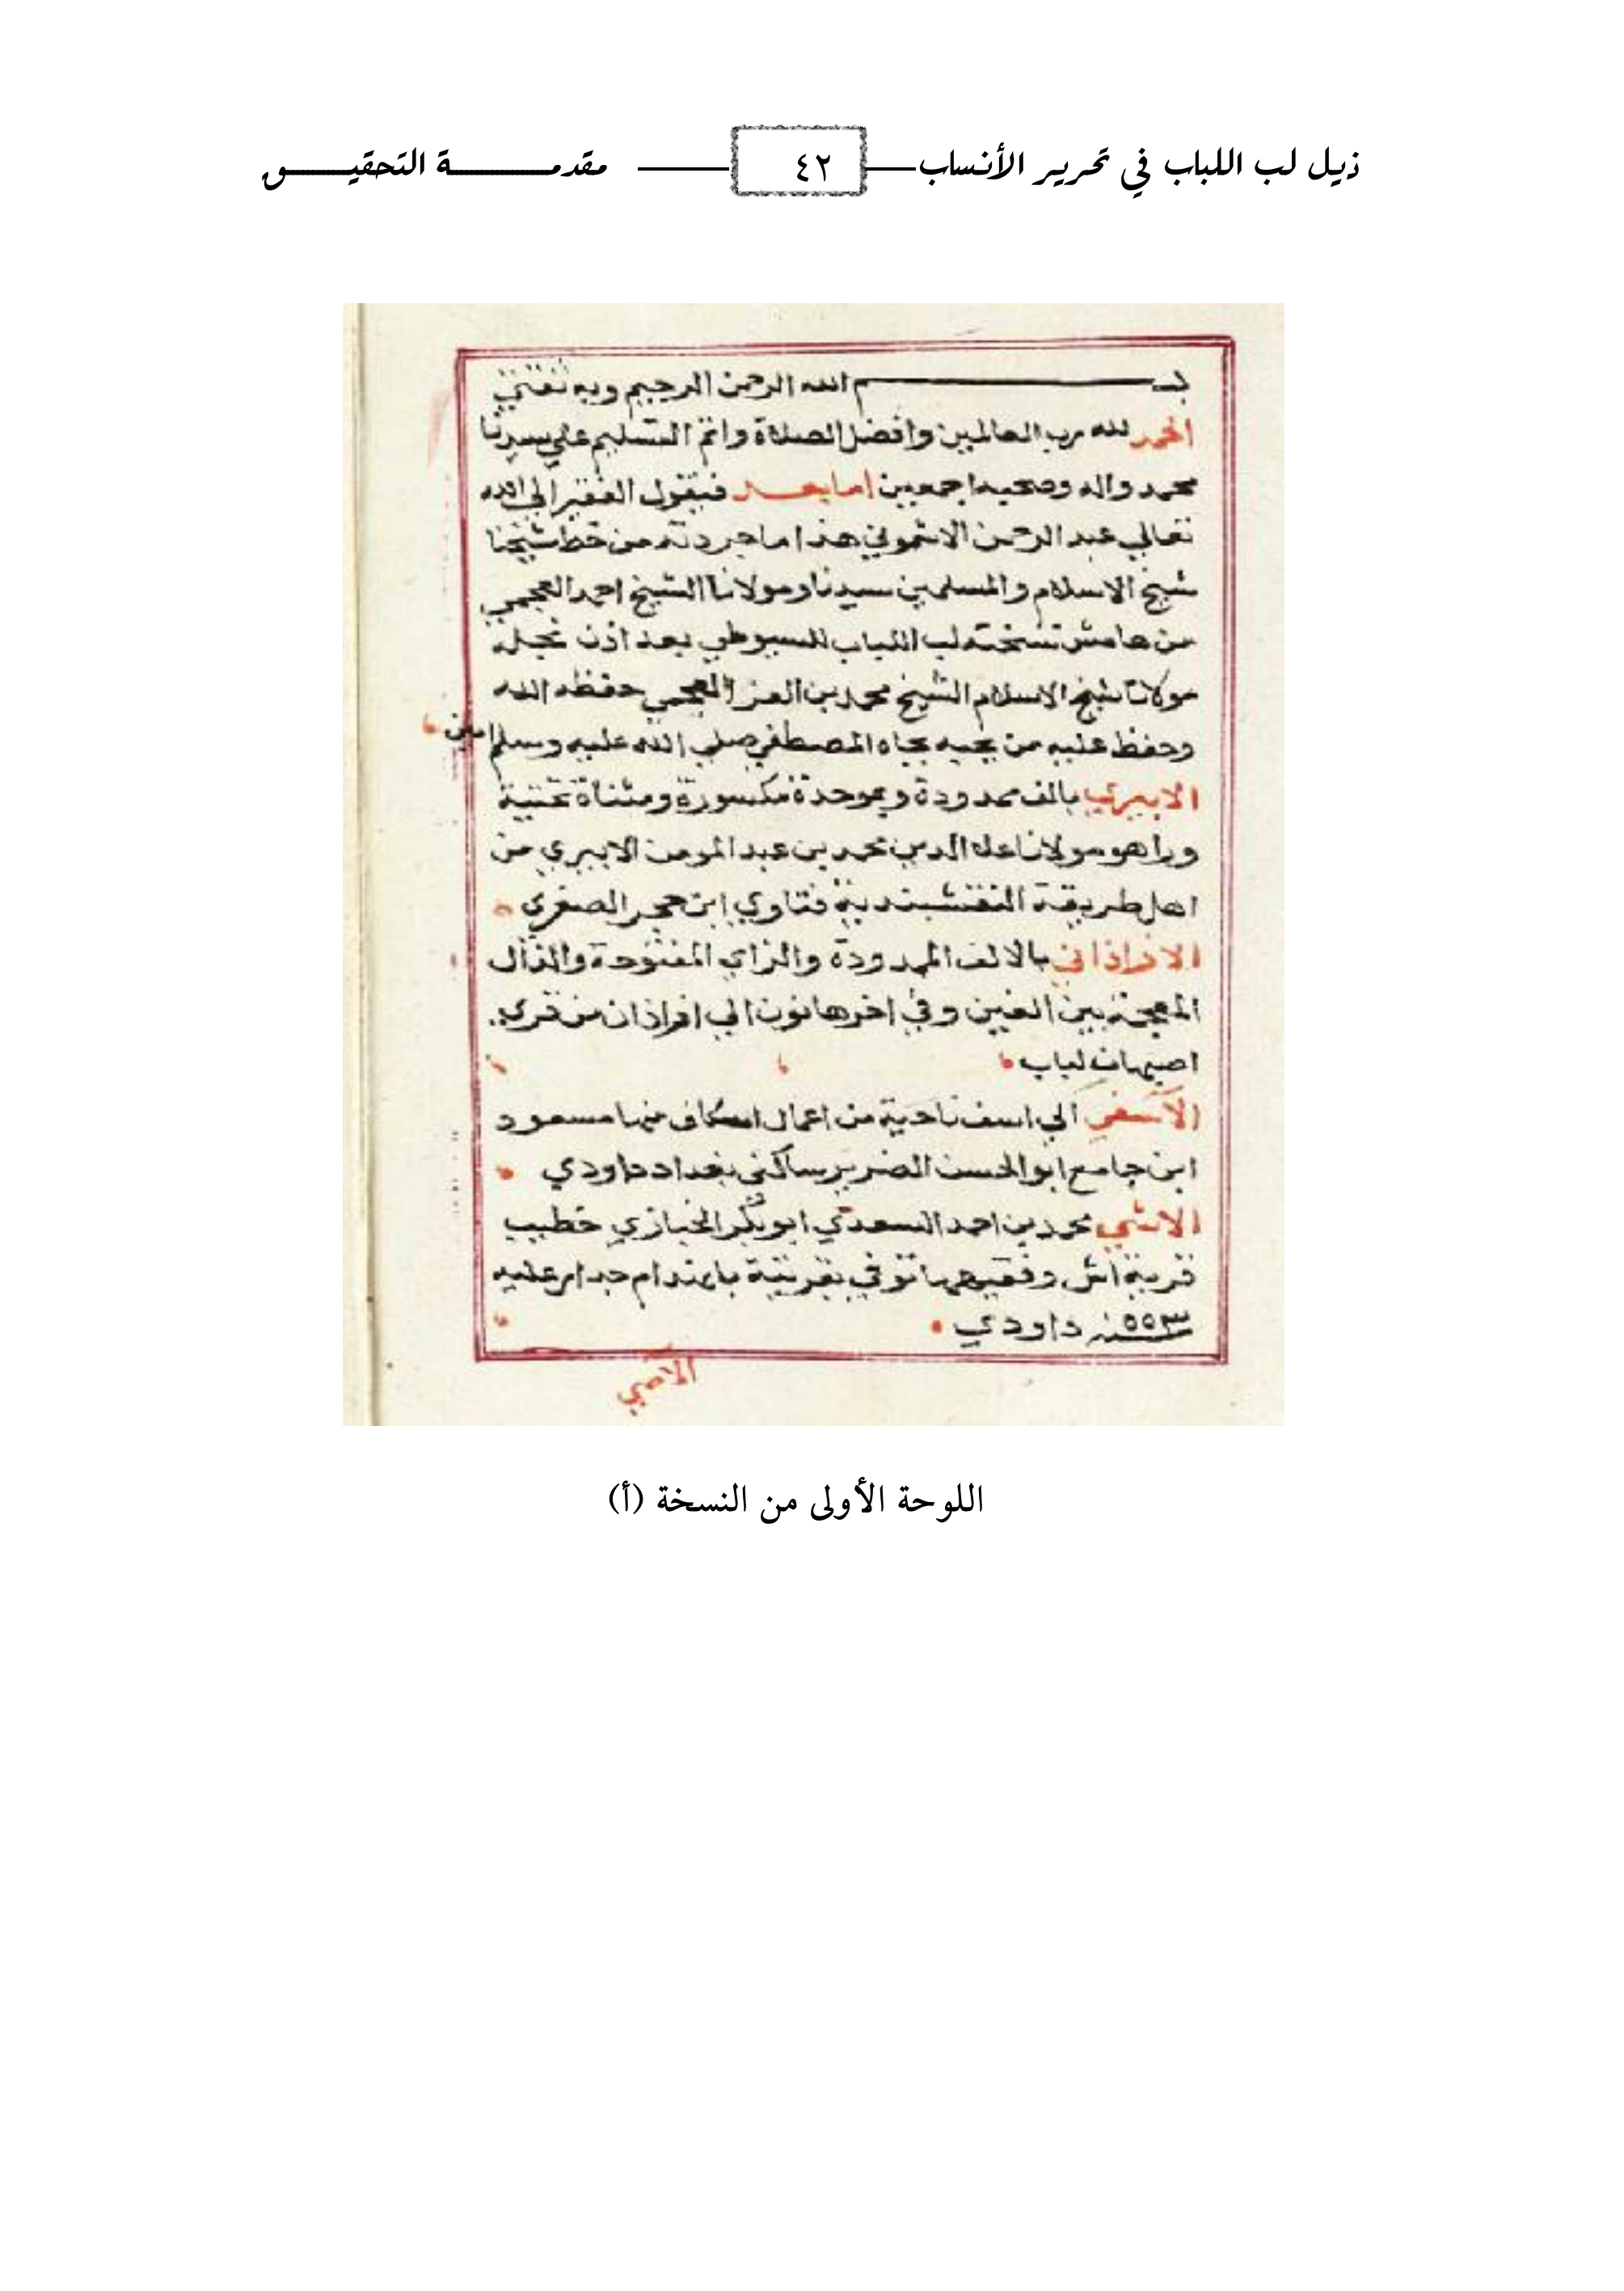 ذيل لب اللباب في تحرير الأنساب ٤٢ مقدمة التحقيق
بسم الله الرحمن الرحيم وبه ثقتي
الحمد لله رب العالمين وافضل الصلاة واتم التسليم علي سيدنا
محمد واله وصحبه اجمعين اما بعد فيقول الفقير الي الله
تعالي عبد الرحمن الاشموني هذا ما جردته من خط شيخنا
شيخ الاسلام والمسلمين سيدنا ومولانا الشيخ احمد العجمي
من هامش نسخته لب اللباب للسيوطي بعد اذن نجله
مولانا شيخ الاسلام الشيخ محمد بن العز العجمي حفظه الله
وحفظ عليه من يحبه بجاه المصطفي صلي الله عليه وسلم امين
الابيري بالف ممدودة وبموحدة مكسورة ومثناة تحتية
ورا هو مولانا علا الدين محمد بن عبد المومن الابيري من
اهل طريقة النقشبندية فتاوي ابن حجر الصغري
الازاذاني بالالف الممدودة والزاي المفتوحة والذال
المعجمة بين الفين وفي اخرها نون الي ازاذان من قري
اصبهان لباب
الآسفي الي اسف ناحية من اعمال اسكاف منها مسعود
ابن جامع ابو الحسن الضرير ساكني بغداد داودي
الاشي محمد بن احمد السعدي ابو بكر الخبازي خطيب
قرية اش وفقيهها توفي بقريته بانهدام جدار عليه
سنة ٥٥٣ داودي
الآصي
اللوحة الأولى من النسخة (أ)